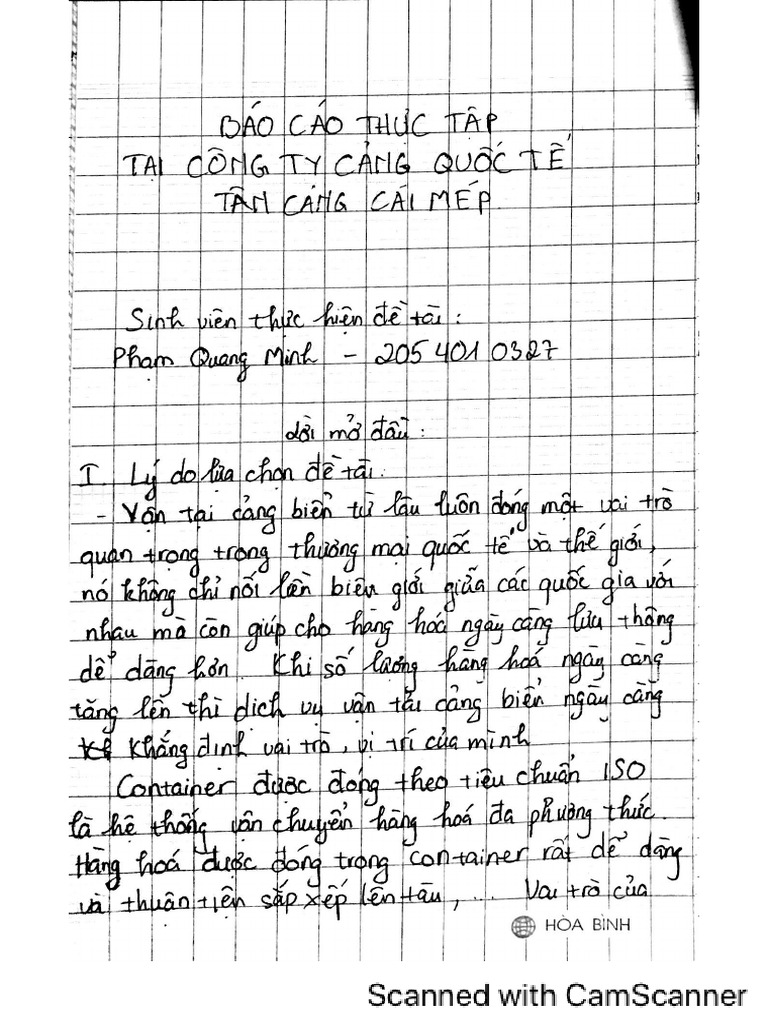 BÁO CÁO THỰC TẬP
TẠI CÔNG TY CẢNG QUỐC TẾ
TÂN CẢNG CÁI MÉP
Sinh viên thực hiện đề tài :
Phạm Quang Minh - 205 401 0327
Lời mở đầu :
I. Lý do lựa chọn đề tài.
- Vận tải cảng biển từ lâu luôn đóng một vai trò
quan trọng trong thương mại quốc tế và thế giới,
nó không chỉ nối liền biên giới giữa các quốc gia với
nhau mà còn giúp cho hàng hoá ngày càng lưu thông
dể dàng hơn. Khi số lượng hàng hoá ngày càng
tăng lên thì dịch vụ vận tải cảng biển ngày càng
khẳng định vai trò, vị trí của mình
Container được đóng theo tiêu chuẩn ISO
là hệ thống vận chuyển hàng hoá đa phương thức.
Hàng hoá được đóng trong container rất dể dàng
và thuận tiện sắp xếp lên tàu, ... Vai trò của
HÒA BÌNH
Scanned with CamScanner